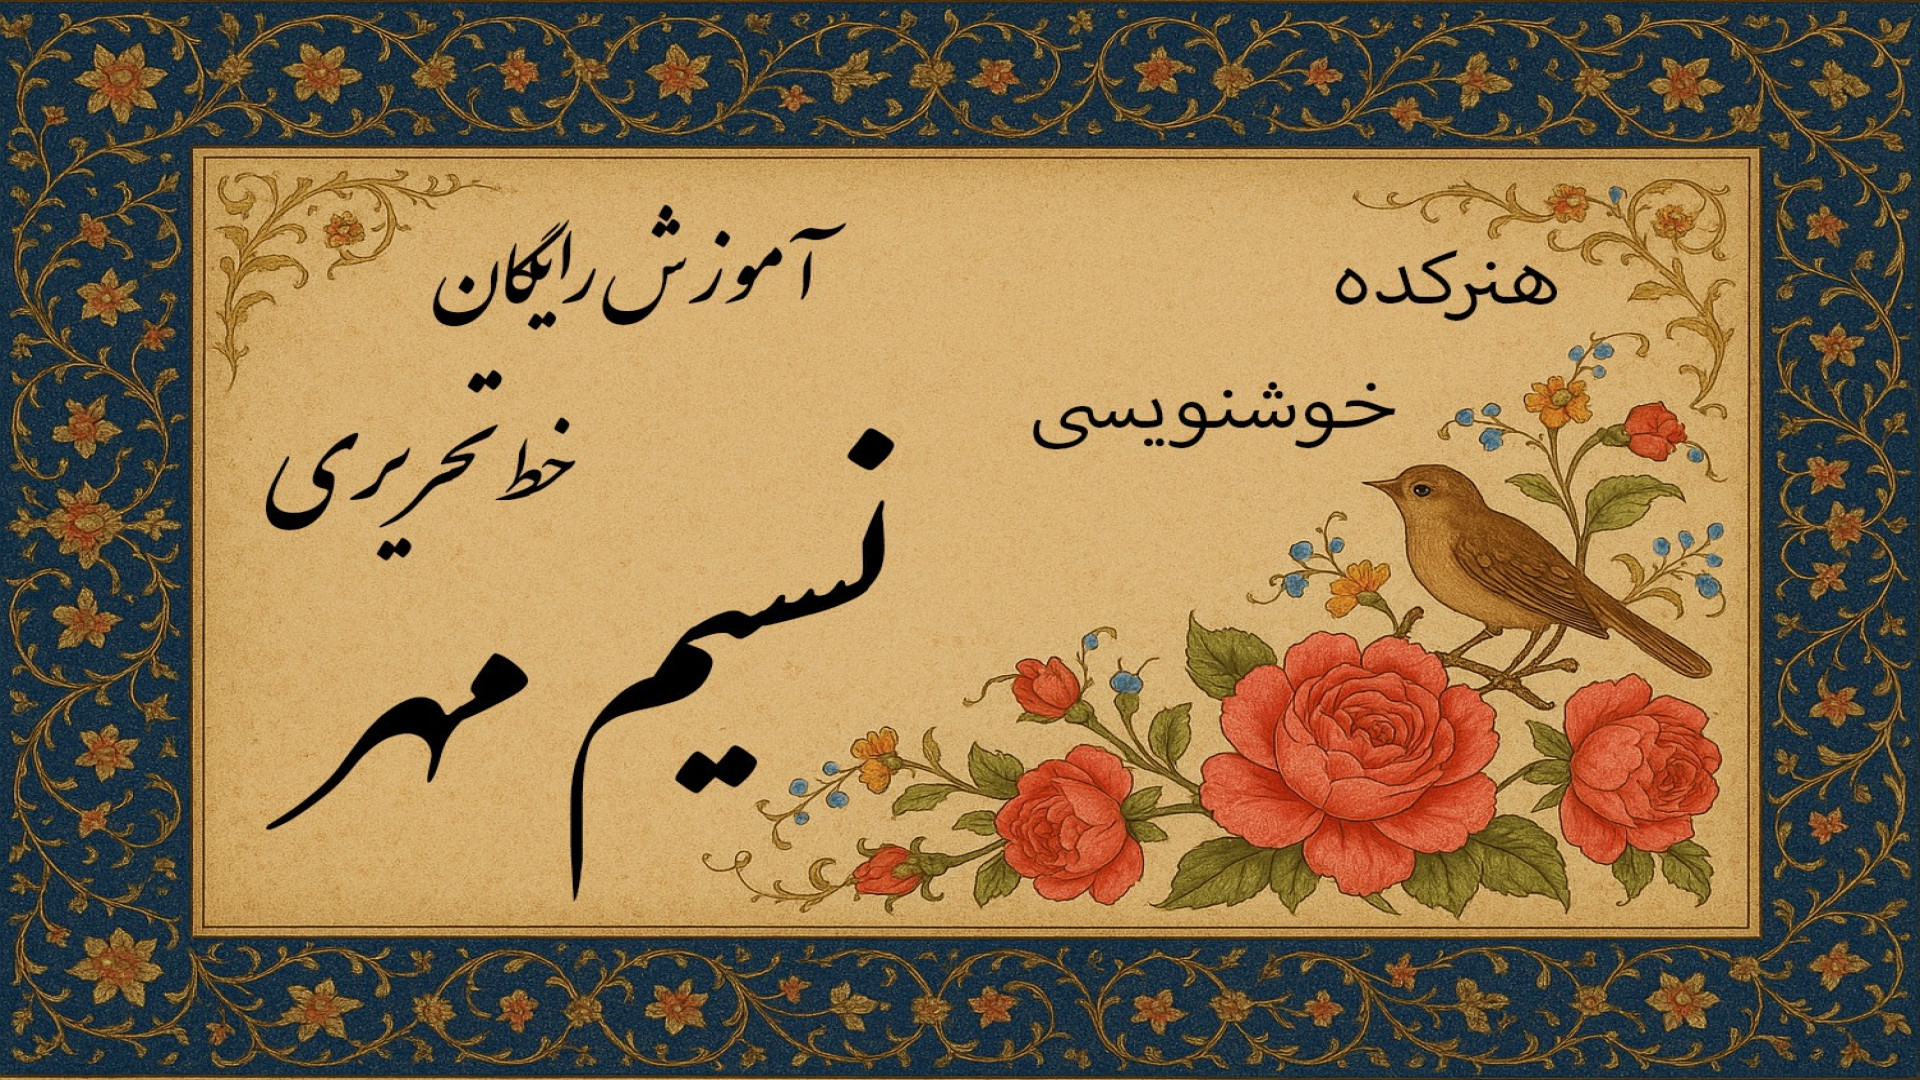 هنرکده
خوشنویسی
آموزش رایگان
خط تحریری
نسیم مهر